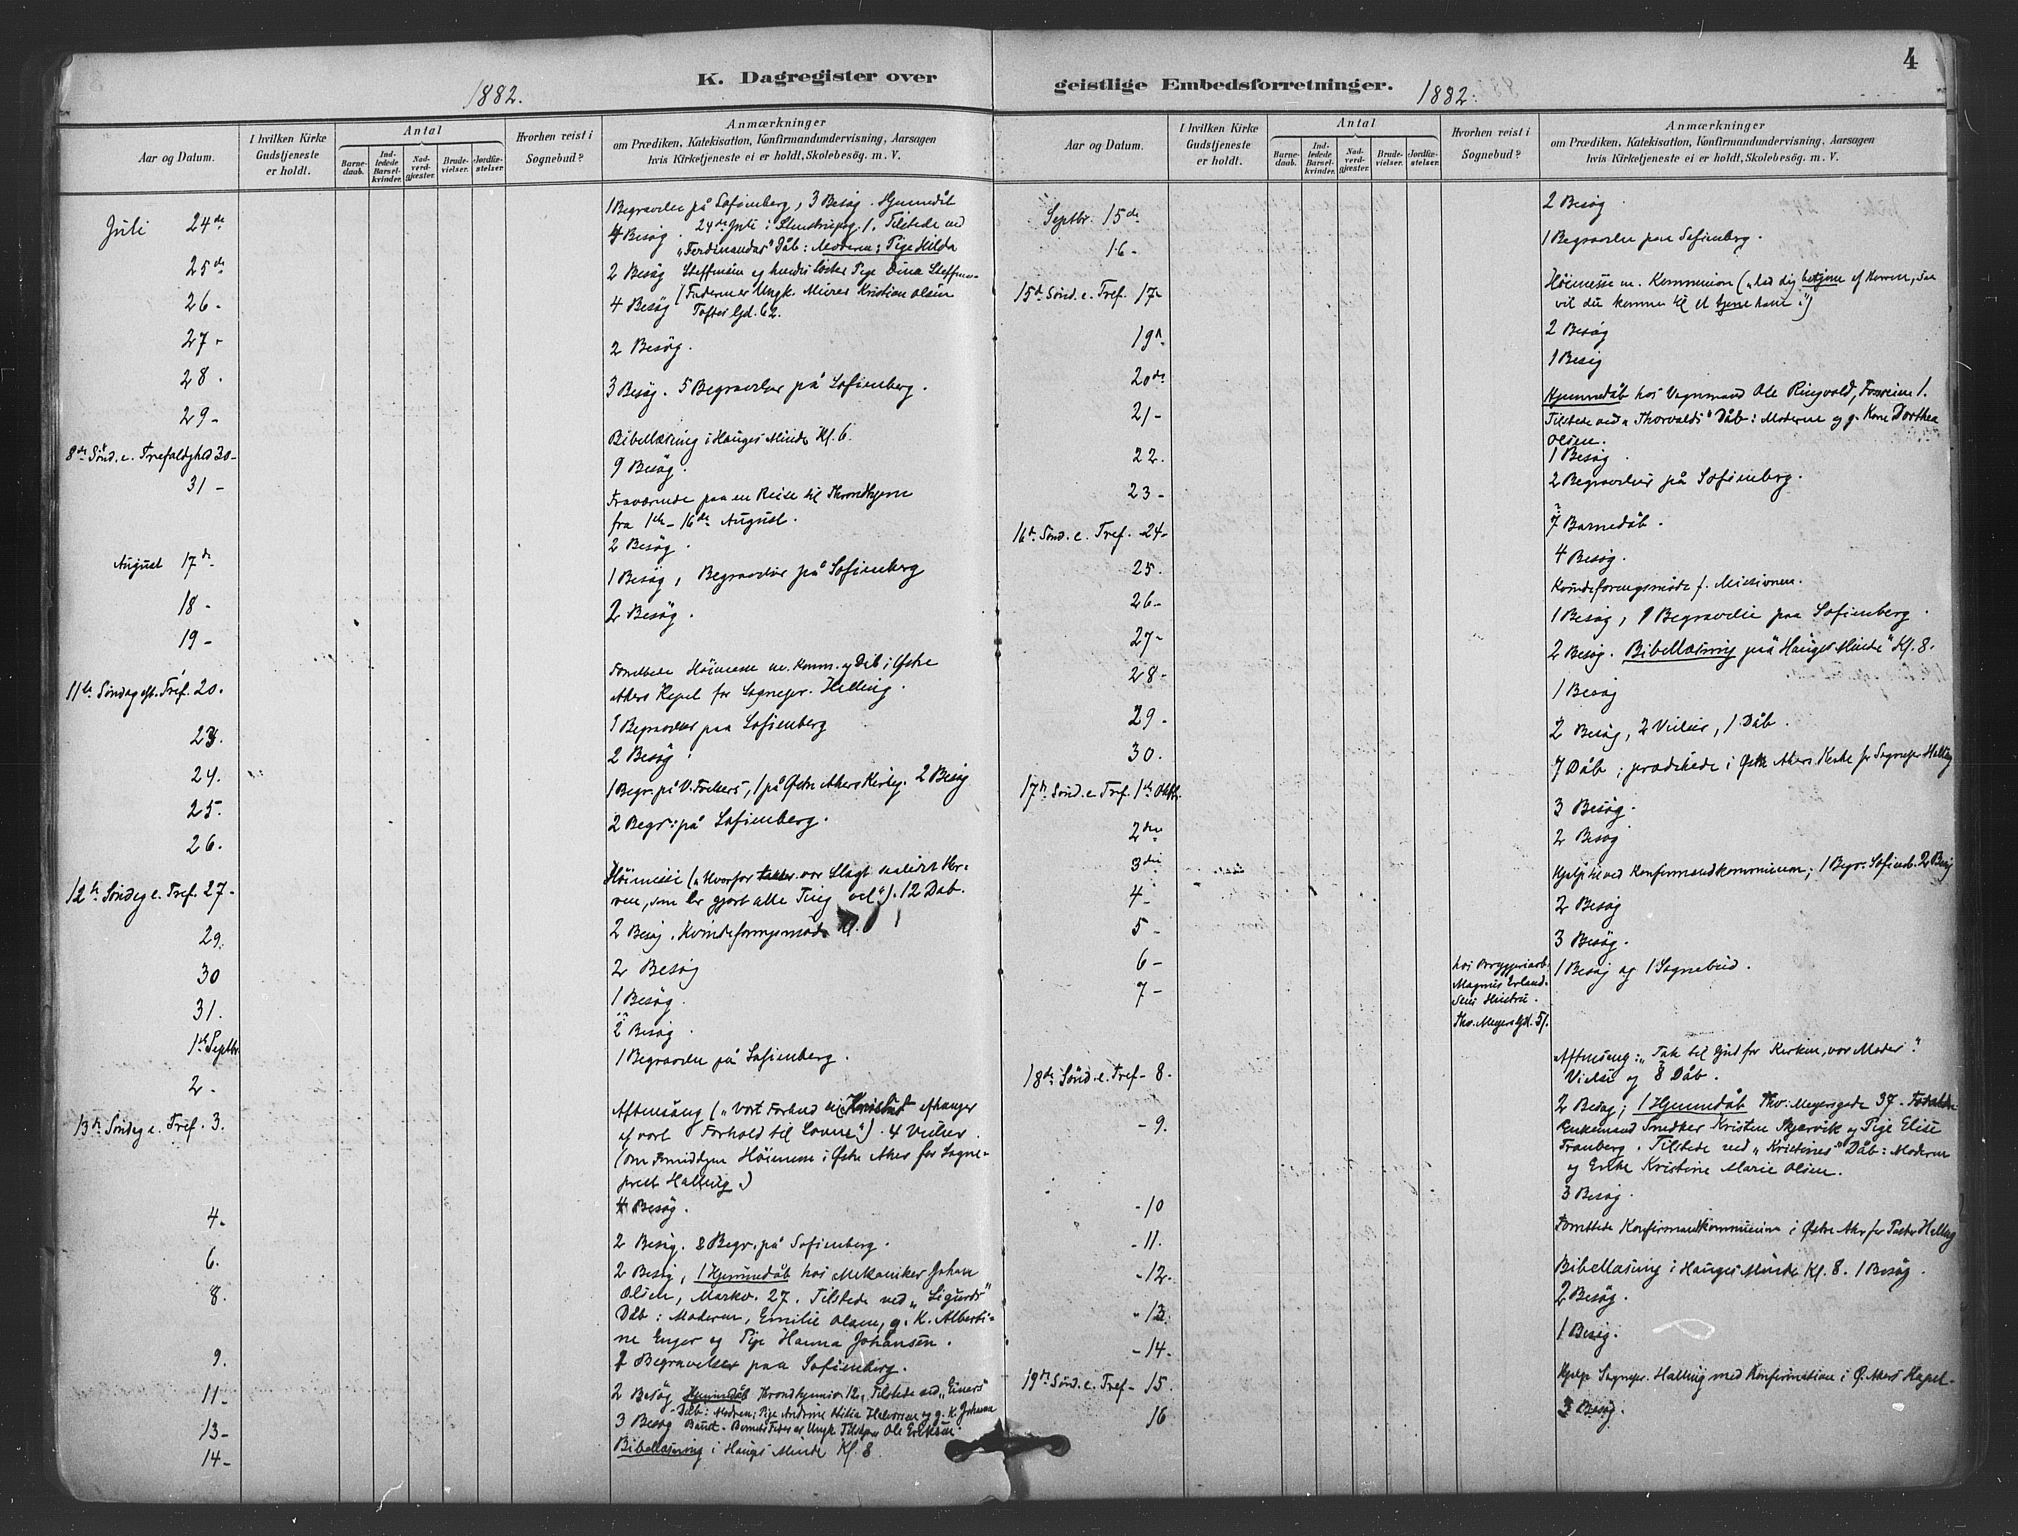 4
K. Dagregister over
geistlige Embedsforretninger.
1882.
1882.
Aar og Datum.
I hvilken Kirke Gudstjeneste er holdt.
Antal
Barnedaab.
Indledede Barselkvinder.
Nadverdgjæster.
Brudevielser.
Jordfæstelser
Hvorhen reist i Sognebud?
Anmærkninger
om Prædiken, Katekisation, Konfirmandundervisning, Aarsagen
hvis Kirketjeneste ei er holdt, Skolebesög. m. V.
Juli 24de
1 Begravelse på Sofienberg, 3 Besøg. Hjemmedåb
4 Besøg. 24de Juli i Stenstrupg. 1. Tilstede ved
"Ferdinandas" Dåb: Moderen; Pige Hilda
25de
2 Besøg Steffensen og hendes Søster Pige Dina Steffen-
26 -
4 Besøg (Faderen er Ungk. Murer Kristian Olsen
Toftes Gd. 62.
27 -
2 Besøg.
28.
3 Besøg. 5 Begravelser på Sofienberg.
29 -
8de Sönd. e. Trefoldighed 30 -
Bibellæsning i Hauges Minde Kl. 6.
31 -
9 Besøg.
Fraværende paa en Reise til Throndhjem
fra 1ste - 16de August.
August 17de
2 Besøg.
18 -
1 Besøg, Begravelser på Sofienberg
19 -
2 Besøg.
11te Søndag eft. Tref. 20.
Forrettede Höimesse m. Komm. og Dåb i Østre
Akers Kapel for Sognepr. Halling.
23.
1 Begravelser paa Sofienberg
24.
2 Besøg.
25.
1 Begr. på V. Frelsers, 1 på Østre Akers Kirkeg. 2 Besøg
26.
2 Begr. på Sofienberg.
12te Søndag e. Tref. 27 -
Höimesse ("Hvorfor taber vor Slægt
ren, som har gjort alle Ting vel"). 12 Dåb.
29.
2 Besøg. Kvindeforeningsmøde Kl. 6
30
2 Besøg
31.
1 Besøg.
1ste Septbr.
2 Besøg.
2 -
1 Begravelse på Sofienberg.
13de Søndag e. Tref. 3.
Aftensang ("Vort Forhold til Kristus afhænger
af vort Forhold til Loven"). 4 Vielser.
(Om Formiddagen Höimesse i Østre Aker for Sogne-
prest Halling)
4 -
4 Besøg.
6.
2 Besøg. 8 Begr. på Sofienberg.
8.
2 Besøg, 1 Hjemmedåb hos Mekaniker Johan
Olsen, Markv. 27. Tilstede ved "Sigurds"
Dåb: Moderen, Emilie Olsen, g. K. Alberti-
ne Enger og Pige Hanna Johansen.
9.
2 Begravelser paa Sofienberg.
11 -
2 Besøg Hjemmedåb Throndhjemsv. 12, Tilstede ved "Einars"
Dåb: Modren; Pige Andrine Halvorsen og g. K. Johanna
13 -
3 Besøg Barnets Fader er Ungk. Ole Eriksen.
14 -
Bibellæsning i Hauges Minde Kl. 8.
Aar og Datum.
I hvilken Kirke Gudstjeneste er holdt.
Antal
Barnedaab.
Indledede Barselkvinder.
Nadverdgjæster.
Brudevielser.
Jordfæstelser.
Hvorhen reist i Sognebud?
Anmærkninger
om Prædiken, Katekisation, Konfirmandundervisning, Aarsagen
hvis Kirketjeneste ei er holdt, Skolebesög. m. V.
Septbr. 15de
2 Besøg
16 -
1 Begravelse paa Sofienberg.
15de Sønd. e. Tref. 17 -
Höimesse m. Kommunion ("Lad dig betjene af Herren, saa
vil du komme til at tjene ham.")
19n
2 Besøg
20de
1 Besøg
21 -
Hjemmedåb hos Vognmand Ole Ringvold, 1.
Tilstede ved "Thorvalds" Dåb: Moderen og g. Kone Dorthea
Olsen.
22.
1 Besøg.
23 -
2 Begravelser på Sofienberg.
16de Sønd. e. Tref. 24 -
7 Barnedåb.
25.
4 Besøg.
26 -
Kvindeforeningsmøde f. Missionen.
27 -
1 Besøg, 1 Begravelse paa Sofienberg.
28 -
2 Besøg. Bibellæsning på "Hauges Minde" Kl. 8.
29.
1 Besøg
30.
2 Besøg, 2 Vielser, 1 Dåb.
17de Sønd. e. Tref. 1ste Oktbr.
7 Dåb; prædikede i Østre Akers Kirke for Sognepr. Halling
2den
3 Besøg.
3die
2 Besøg
4 -
Hjalp til ved Konfirmandkommunion; 1 Begr. Sofienb. 2 Besøg
5 -
2 Besøg
6 -
3 Besøg.
7 -
hos Bryggeriarb.
Magnus Erland-
sens Hustru.
Thv. Meyers Gd. 51.
1 Besøg og 1 Sognebud.
18de Sønd. e. Tref - 8.
Aftensang: "Tak til Gud for Kirken, vor Moder".
Vielse og 8 Dåb.
- 9.
2 Besøg; 1 Hjemmedåb Thv. Meyersgade 37. Forældre
Enkemand Snedker Kristen Skjærvik og Pige Elise
Franberg. Tilstede ved "Kristines" Dåb: Moderen
og Enke Kristine Marie Olsen.
- 10
3 Besøg.
- 11.
Forrettede Konfirmandkommunion i Østre Aker for Pastor Halling
- 12.
Bibellæsning i Hauges Minde Kl. 8. 1 Besøg.
- 13.
2 Besøg.
- 14.
1 Besøg.
19de Sønd. e. Tref - 15.
Hjalp Sognepr. Halling med Konfirmation i Ø. Akers Kapel -
16
3 Besøg.